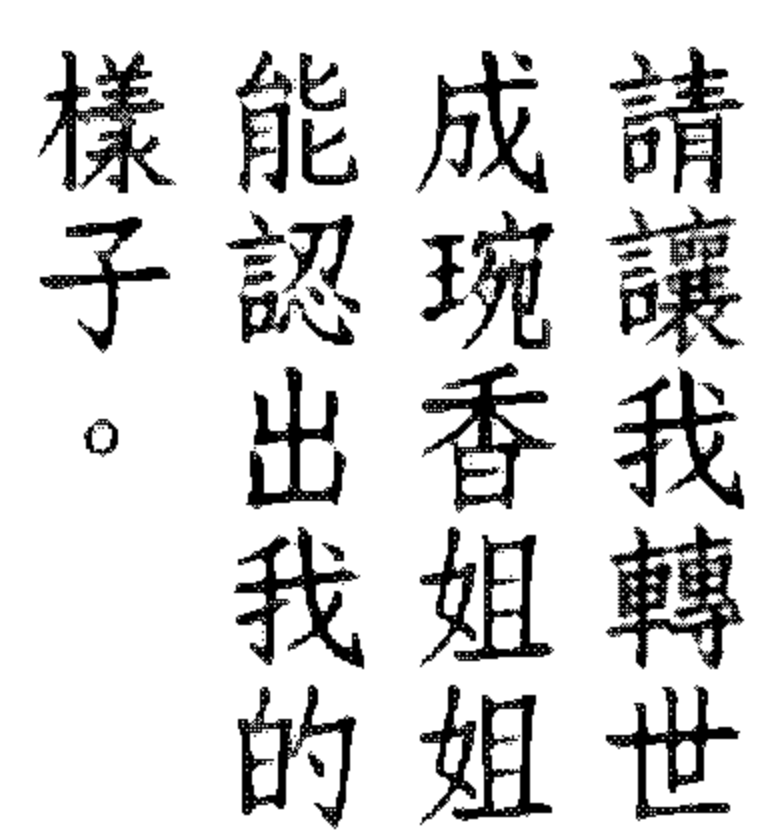 請讓我轉世
成琬香姐姐
能認出我的
樣子。